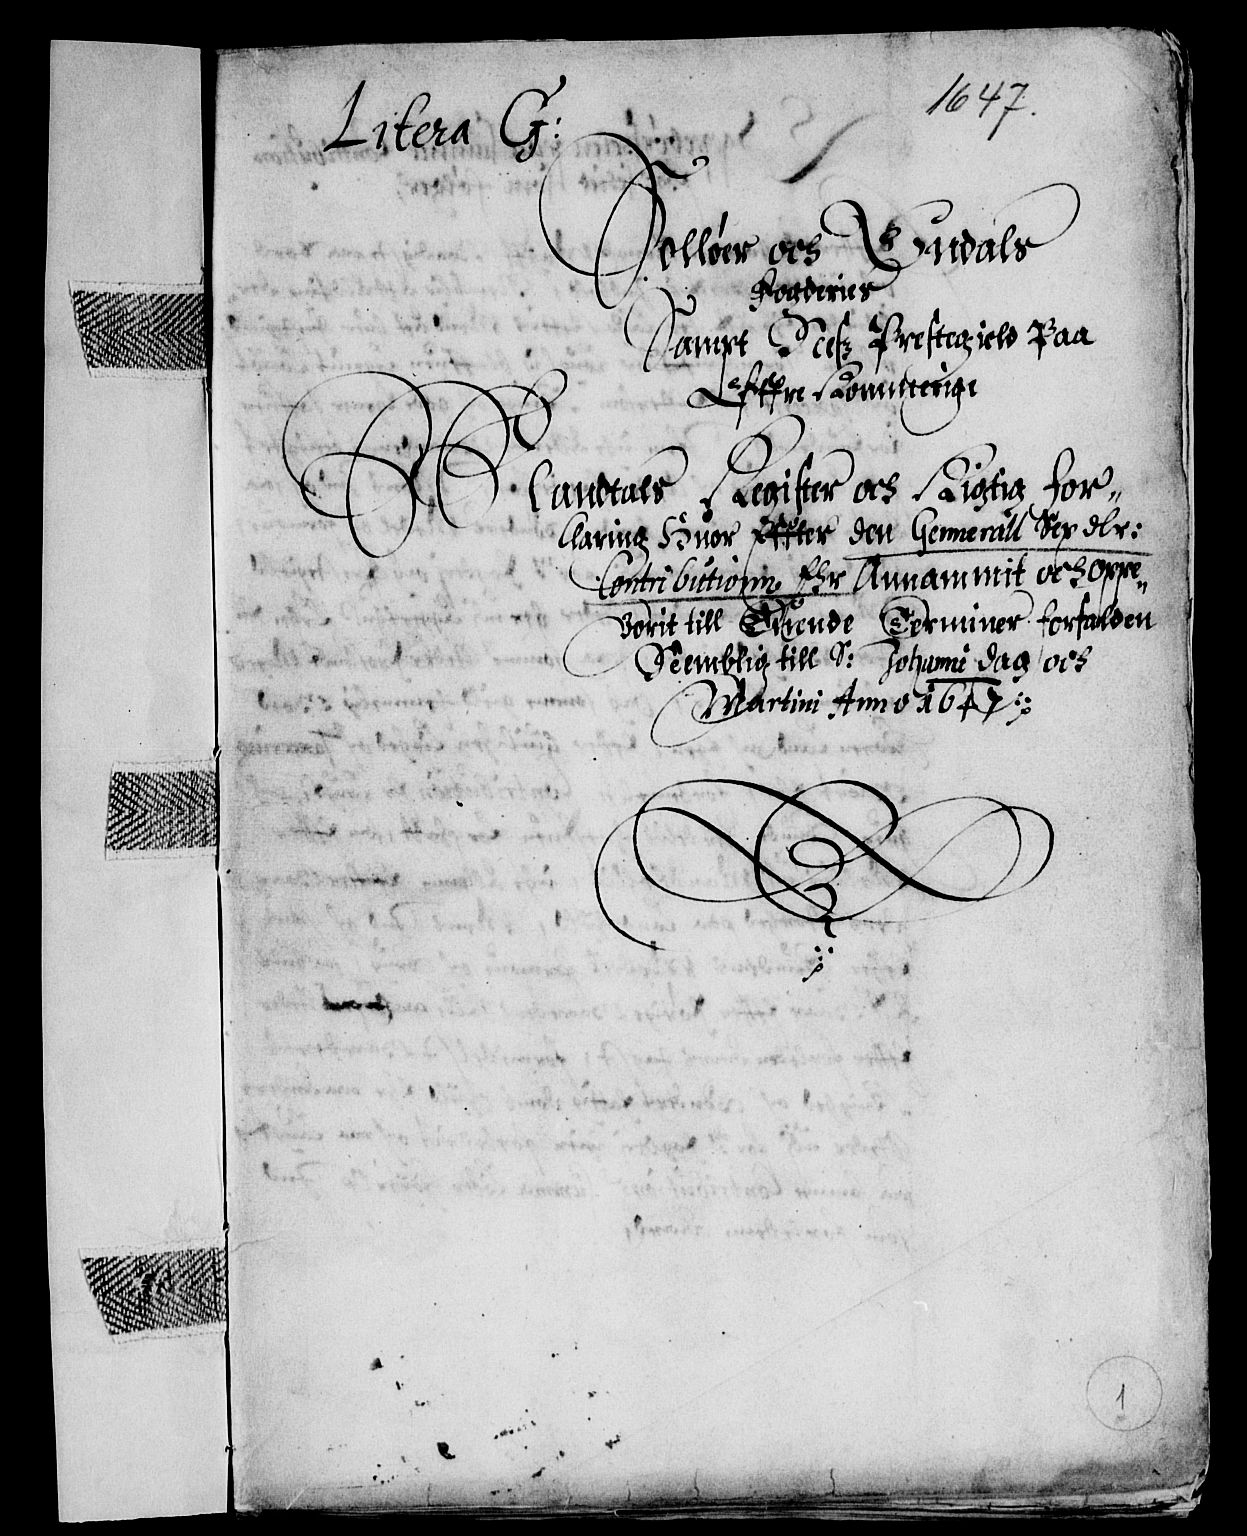 Litera G:
1647.
Solløer och Eudals
fogderies
Sampt Næs Prestegield Paa
Effre Rommerige
Mandtals Register och Rigtig for„
klaring Huor Effter den Gennerall Sex dlr:
Contribution Ehr Annammit och oppe„
borit till Tuende Terminer forfalden
Nemblig till S: Johanni dag och
Martini Anno 1647
1